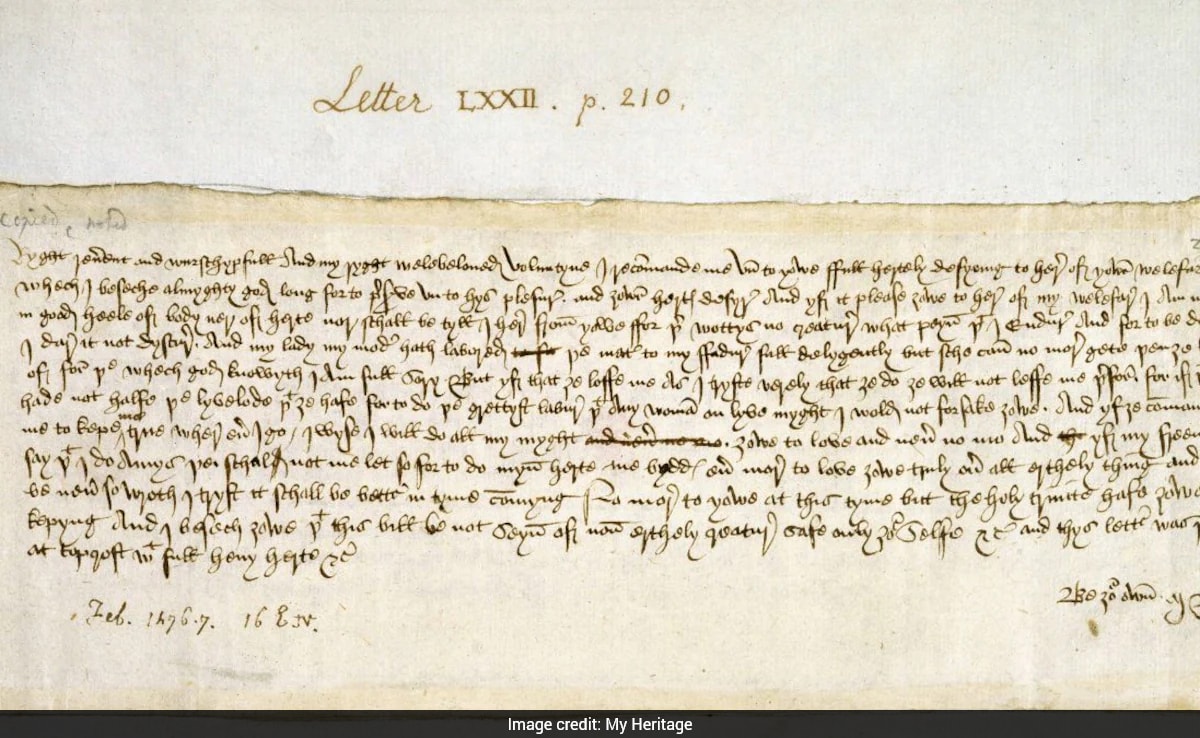 Letter LXXII. p. 210.
copied & noted
Ryght reu̅ent and wurschypfull And my ryght welebeloued Voluntyne I reco̅mande me vn to yowe ffull hertely desyring to her of yowr welefar
whech I beseche almyghty god long for to p̃serve vn to hys plesur. and zowr hertꝭ desyr And yf it please zowe to her of my welefar I Am
in good heele of body ner of herte nor schall be tyll I her from yowe ffor þr wottys no creatur what peyn þt I Endur And for to be d
I dar it not dyscur. And my lady my modr hath labored þe matr to my ffadur full delygently but sche can no mor gete þen ze
of. for þe whech god knowyth I Am full Sory But yf that ze loffe me As I tryste verely that ze do ze will not leffe me þrfor. for if þ
hade not halfe þe lyvelode þt ze hafe for to do þe grettyst labur þt Any woman on lyve myght I wold not forsake zowe. And yf ze co̅man
me to kepe me true wher eu̅ I go / I wyse I will do all my myght zowe to love and neu̅ no mo And yf my freen
say þt I do Amys þei schal not me let so for to do myn herte me byddꝭ eu̅ mor to love zowe truly ou̅ all erthely thing And
be neu̅ so wroth I tryst it schall be bettr in tyme co̅myng No mor to yowe at this tyme but the holy trinite hafe zowe
kepyng And I besech zowe þt this bill be not Seyn of non erthely creatur safe only zor Selfe &c and thys lettr was
at topcroft wt full heuy herte &c
Be zor own M
Feb. 1476.7. 16 E IV.
Image credit: My Heritage